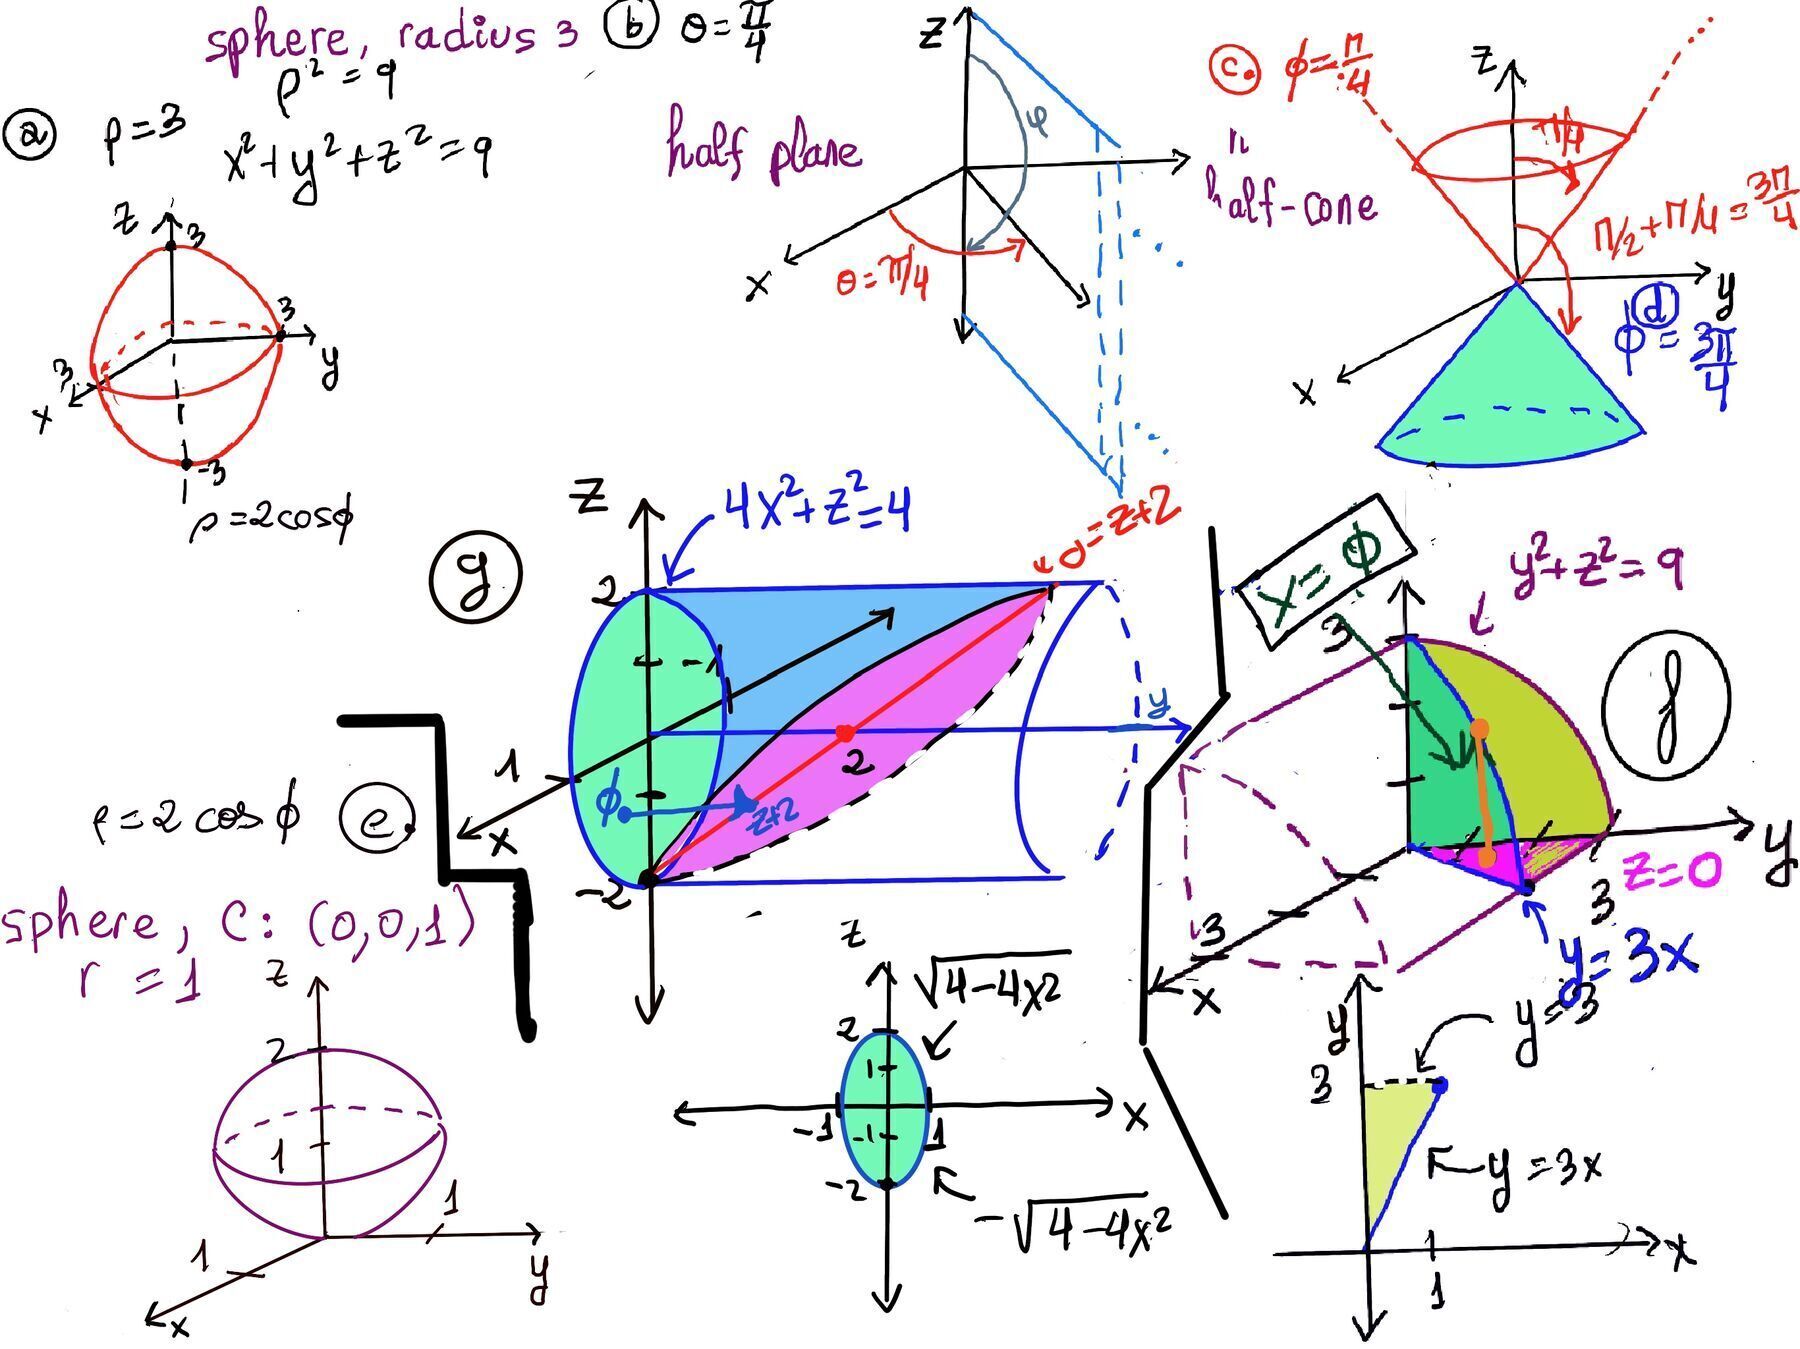 sphere, radius 3
ρ² = 9
ⓐ ρ = 3
x² + y² + z² = 9
z
3
3
y
3
x
-3
ρ = 2cosϕ
ⓑ θ = π/4
half plane
z
φ
x
θ = π/4
ⓒ. ϕ = π/4
"
half-cone
z
π/4
π/2 + π/4 = 3π/4
y
x
ⓓ
ϕ = 3π/4
ⓖ
z
4x² + z² = 4
= z+2
2
1
y
2
1
x
ϕ
z+2
-2
ρ = 2 cos ϕ ⓔ.
sphere, C: (0,0,1)
r = 1
z
2
1
1
1
y
x
z
√4-4x²
2
1
-1
1
x
-1
-2
-√4-4x²
x = ϕ
y² + z² = 9
3
ⓕ
y
3
z=0
3
x
y = 3x
y
y = 3
3
y = 3x
x
1